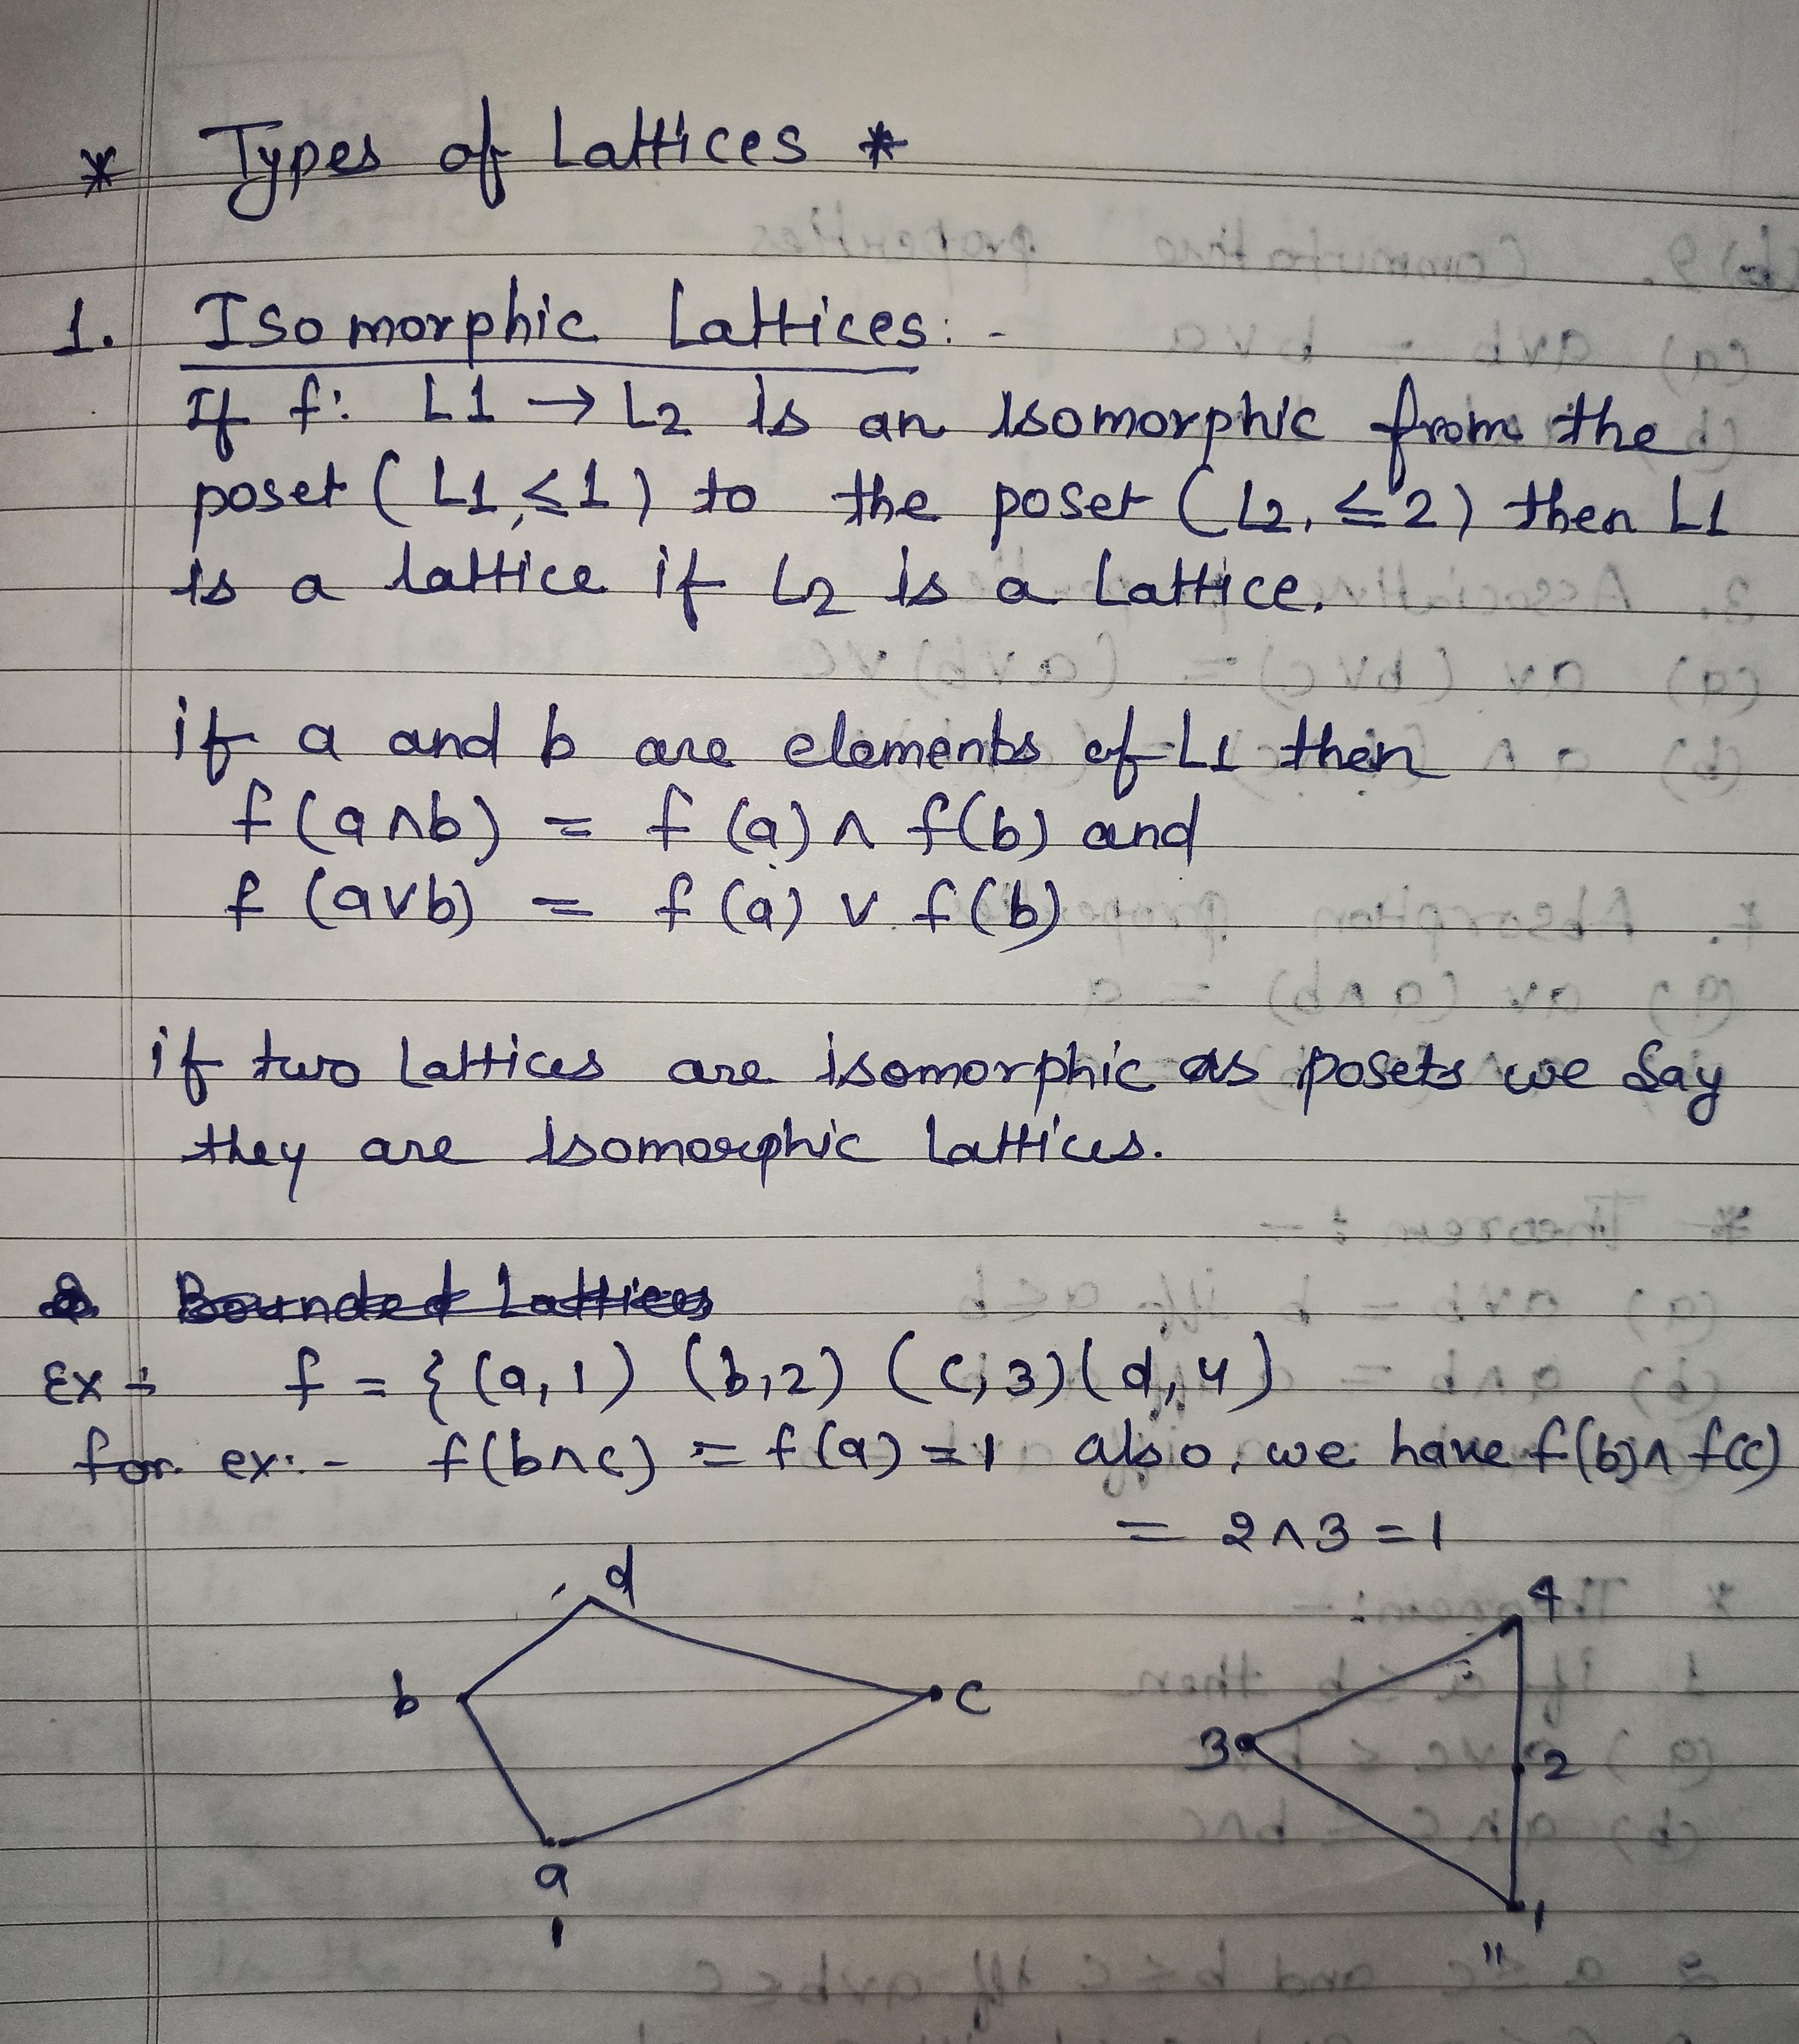 * Types of Lattices *
1. Isomorphic Lattices: -
If f: L1 → L2 is an isomorphic from the
poset ( L1, ≤1 ) to the poset ( L2, ≤2 ) then L1
is a lattice if L2 is a Lattice.
if a and b are elements of L1 then
f (a∧b) = f (a) ∧ f(b) and
f (a∨b) = f (a) ∨ f(b)
if two Lattices are isomorphic as posets we Say
they are isomorphic Lattices.
Bounded Lattices
Ex :- f = { (a, 1) (b,2) (c, 3) (d, 4)
for ex: - f(b∧c) = f(a) = 1 also, we have f(b)∧ f(c)
= 2∧3 = 1
d
4
b
c
3
2
a
1
1
11